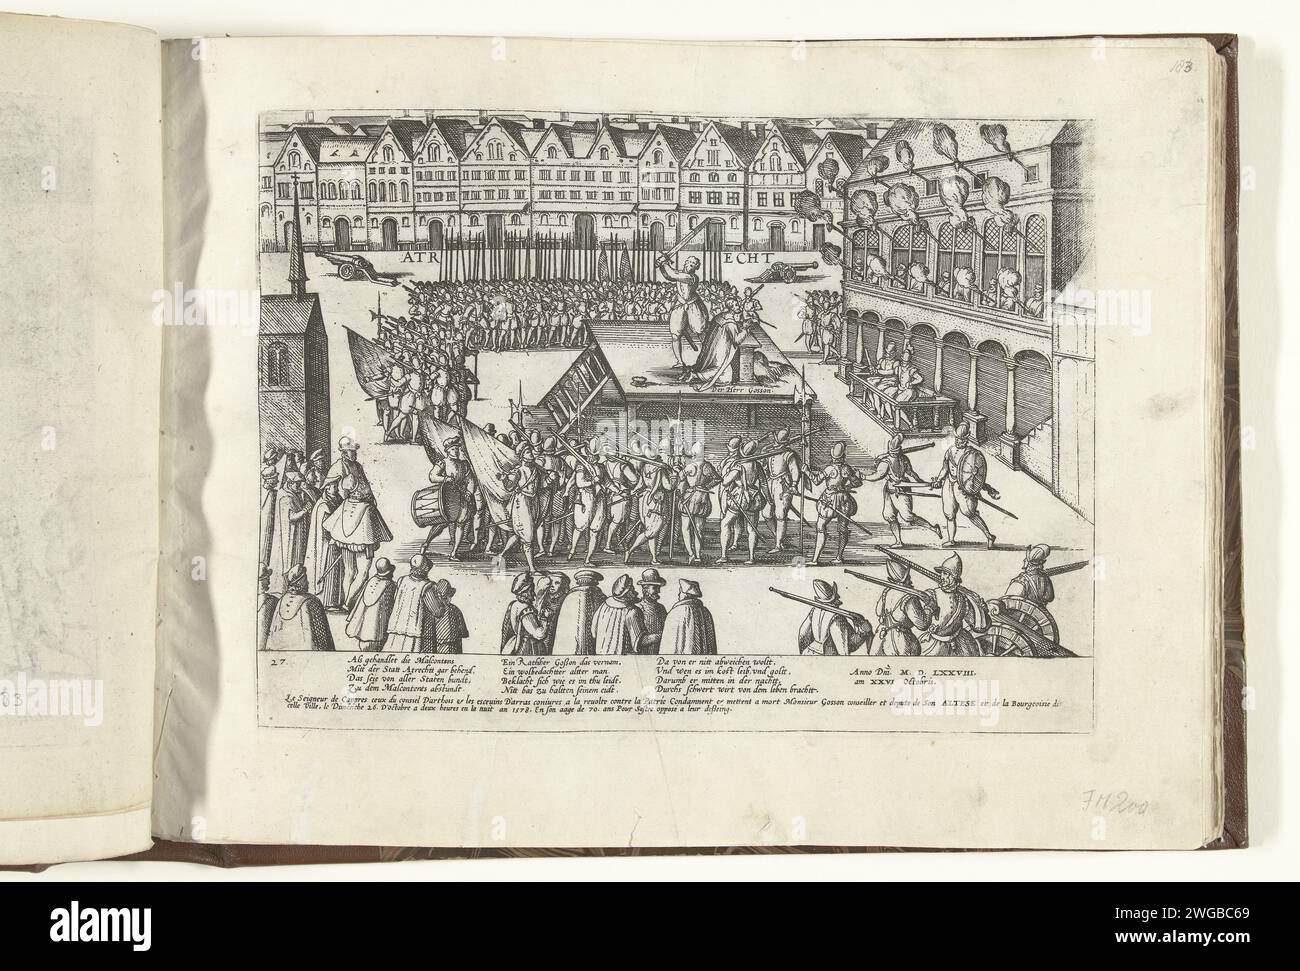 183
ATRECHT
Der Herr Gosson.
27.
Als gehandlet die Malcontens
Mitt der Statt Atrecht gar behend.
Das seie von aller Staten bundt.
Zu dem Malcontents abstundt.
Ein Rathher Gosson das vernam.
Ein wolbedachtter altter man.
Beklacht sich wie es in thu leidt.
Nitt bas zu haltten seinem eidt.
Da von er nitt abweichen wollt.
Und wen es im kost leib und golt.
Darumb er mitten in der nacht.
Durchs schwert wirt von dem leben bracht.
Anno Dni. M. D. LXXVIII.
am XXVI Octobris.
Le Seigneur de Capres ceux du conseil D'arthois & les escevins D'arras coniures a la revolte contre la Patrie Condamnent & mettent a mort Monsieur Gosson conseiller et depute de Son ALTESE et de la Bourgeoisie di
celle Ville, le Dimenche 26. D'octobre a deux heures en la nuit an 1578. En son aage de 70. ans Pour Sestre oppose a leur desseing.
FM 200
83
alamy
Image ID: 2WGBC69
www.alamy.com